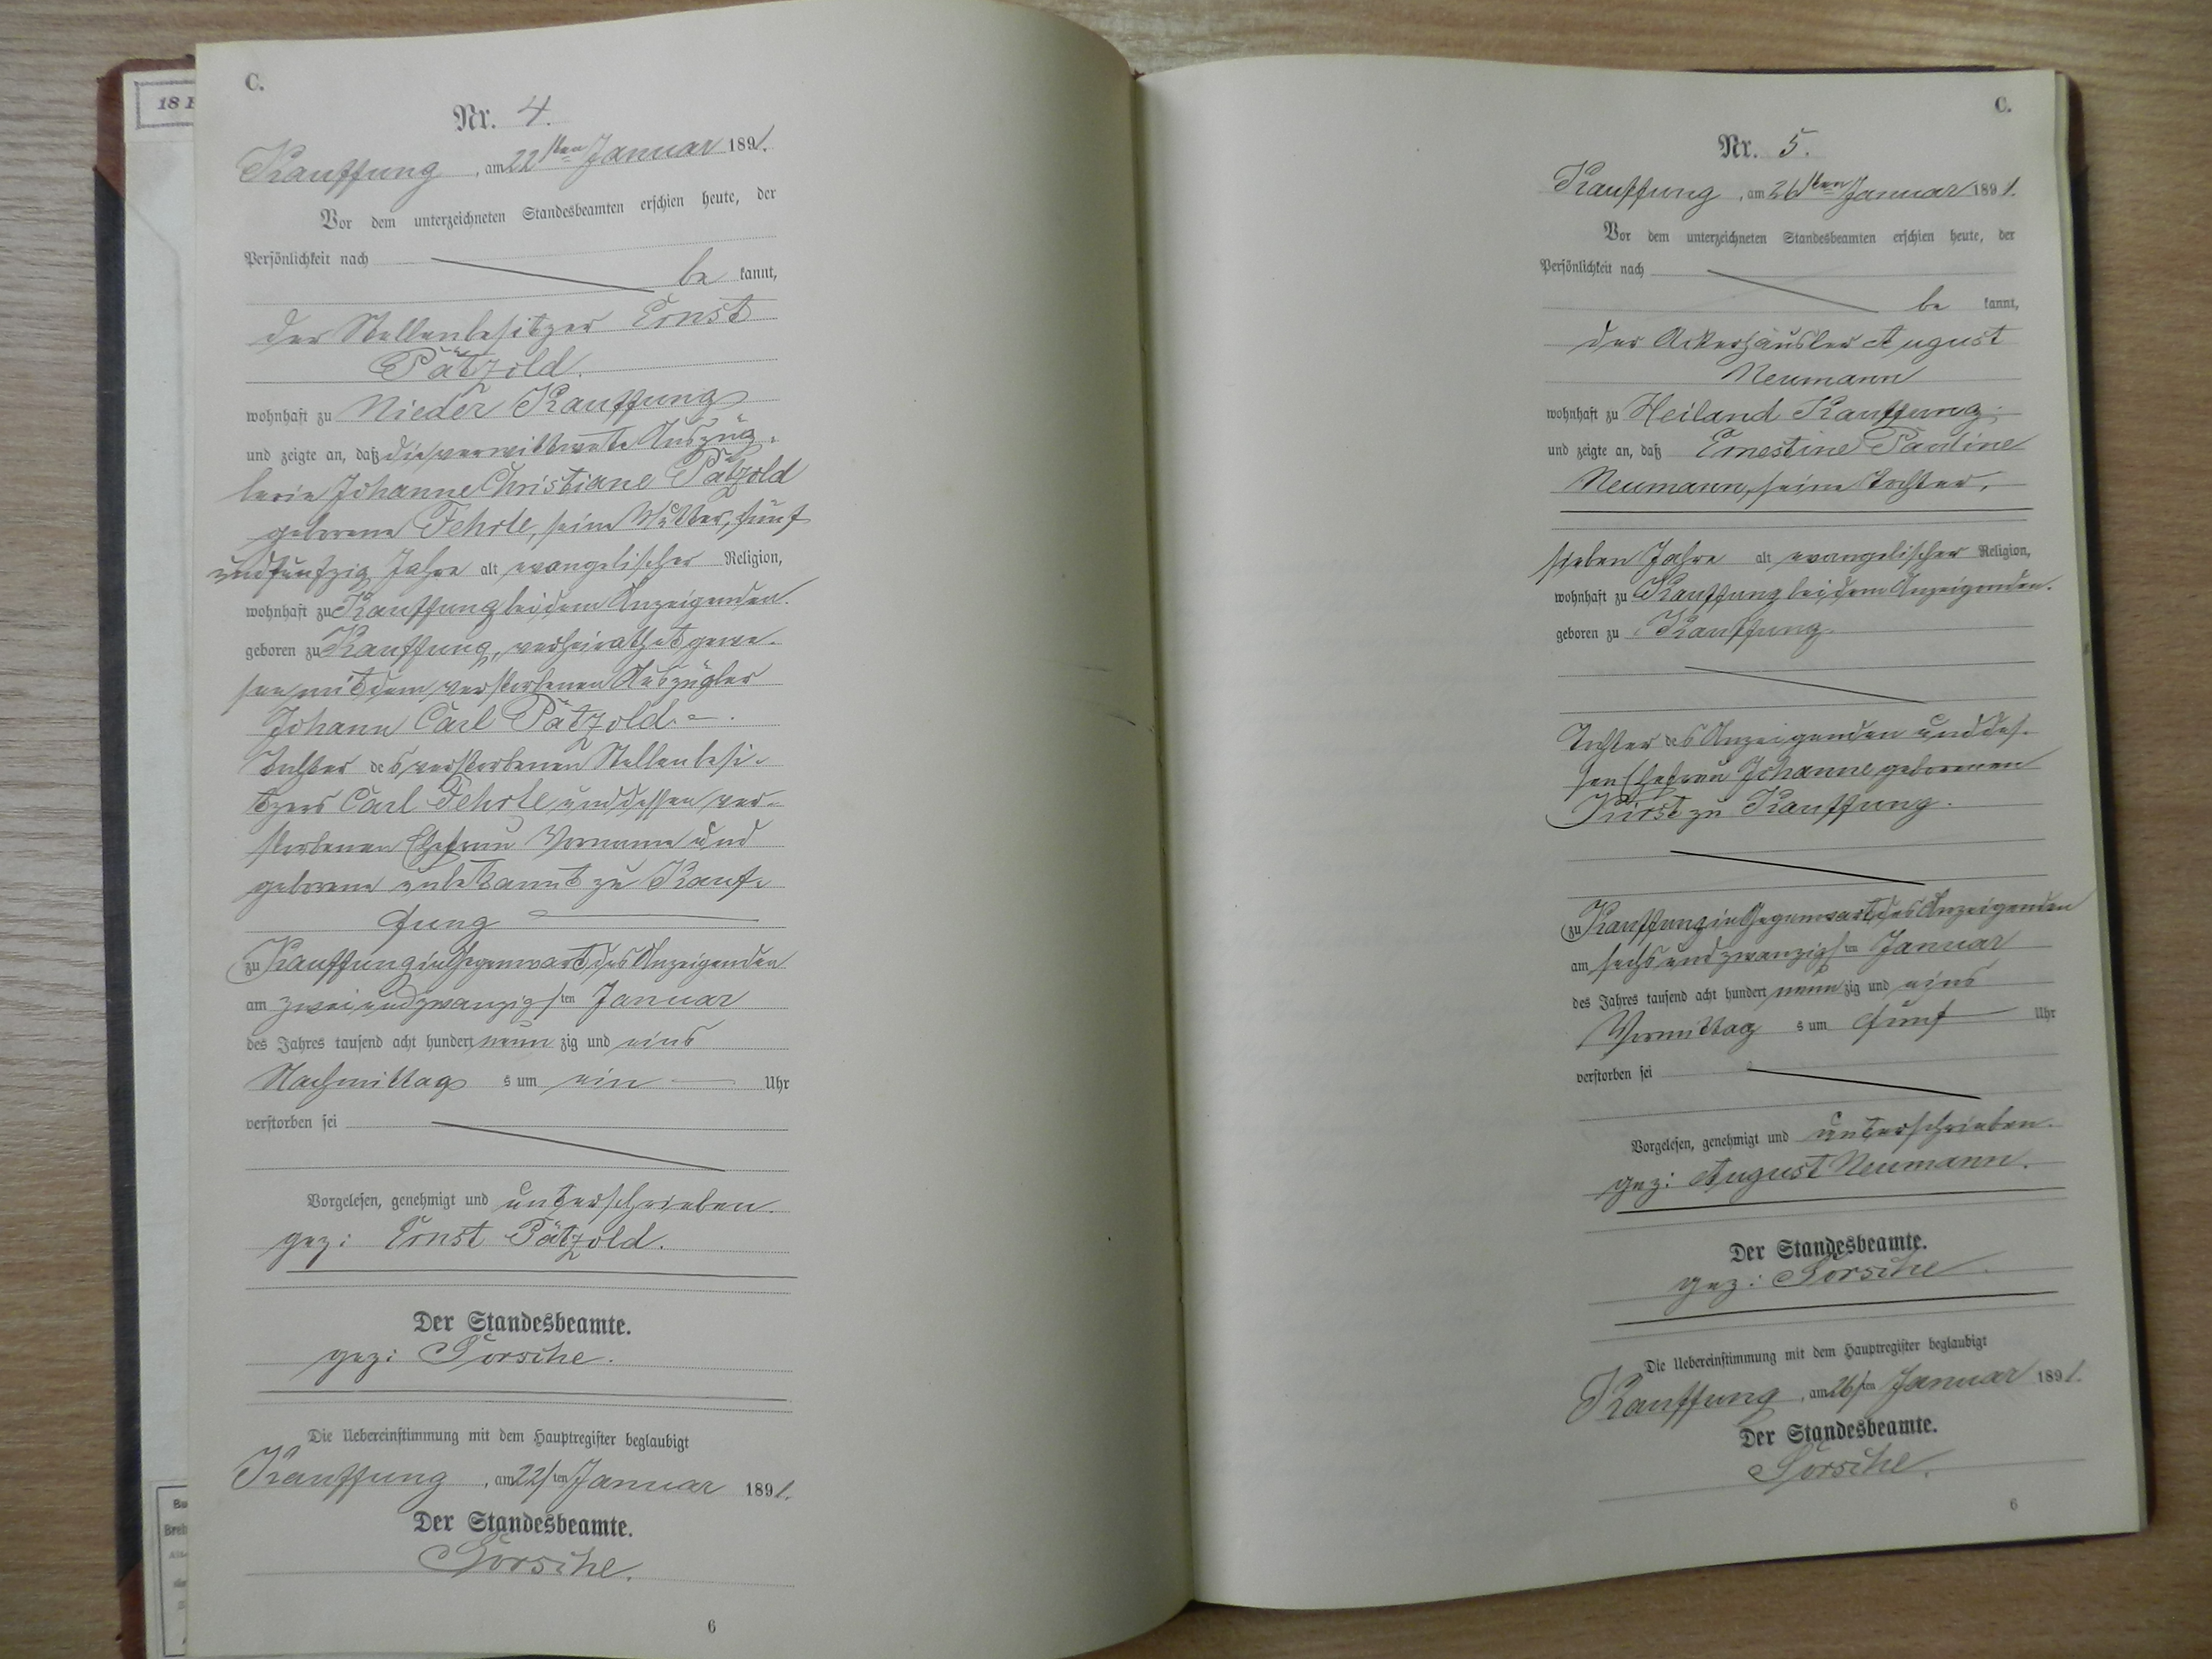 18
C.
Nr. 4.
Kauffung, am 22sten Januar 1891.
Vor dem unterzeichneten Standesbeamten erschien heute, der
Persönlichkeit nach
be kannt,
der Stellenbesitzer Ernst
Pätzold.
wohnhaft zu Nieder Kauffung
und zeigte an, daß die verwittwete Auszüg-
lerin Johanne Christiane Pätzold
geborene Fehrle, seine Mutter, fünf
undfünfzig Jahre alt evangelischer Religion,
wohnhaft zu Kauffung bei dem Anzeigenden.
geboren zu Kauffung, verheirathet gewe-
sen mit dem verstorbenen Auszügler
Johann Carl Pätzold.
Tochter des verstorbenen Stellenbesi-
tzers Carl Fehrle und dessen ver-
storbenen Ehefrau Vorname und
geborene unbekannt zu Kauf-
fung
zu Kauffung in Gegenwart des Anzeigenden
am zwei und zwanzigsten Januar
des Jahres tausend acht hundert neun zig und eins
Nachmittags um ein Uhr
verstorben sei
Vorgelesen, genehmigt und unterschrieben.
gez: Ernst Pätzold.
Der Standesbeamte.
gez: Sorsche.
Die Uebereinstimmung mit dem Hauptregister beglaubigt
Kauffung, am 22sten Januar 1891.
Der Standesbeamte.
Sorsche.
6
C.
Nr. 5.
Kauffung, am 26sten Januar 1891.
Vor dem unterzeichneten Standesbeamten erschien heute, der
Persönlichkeit nach
be kannt,
der Ackerhäusler August
Neumann
wohnhaft zu Heiland Kauffung;
und zeigte an, daß Ernestine Pauline
Neumann, seine Tochter,
sieben Jahre alt evangelischer Religion,
wohnhaft zu Kauffung bei dem Anzeigenden.
geboren zu Kauffung.
Tochter des Anzeigenden und des-
sen Ehefrau Johanne geborenen
zu Kauffung.
zu Kauffung in Gegenwart des Anzeigenden
am sechs und zwanzigsten Januar
des Jahres tausend acht hundert neun zig und eins
Vormittags um fünf Uhr
verstorben sei
Vorgelesen, genehmigt und unterschrieben.
gez: August Neumann.
Der Standesbeamte.
gez: Sorsche.
Die Uebereinstimmung mit dem Hauptregister beglaubigt
Kauffung, am 26sten Januar 1891.
Der Standesbeamte.
Sorsche.
6